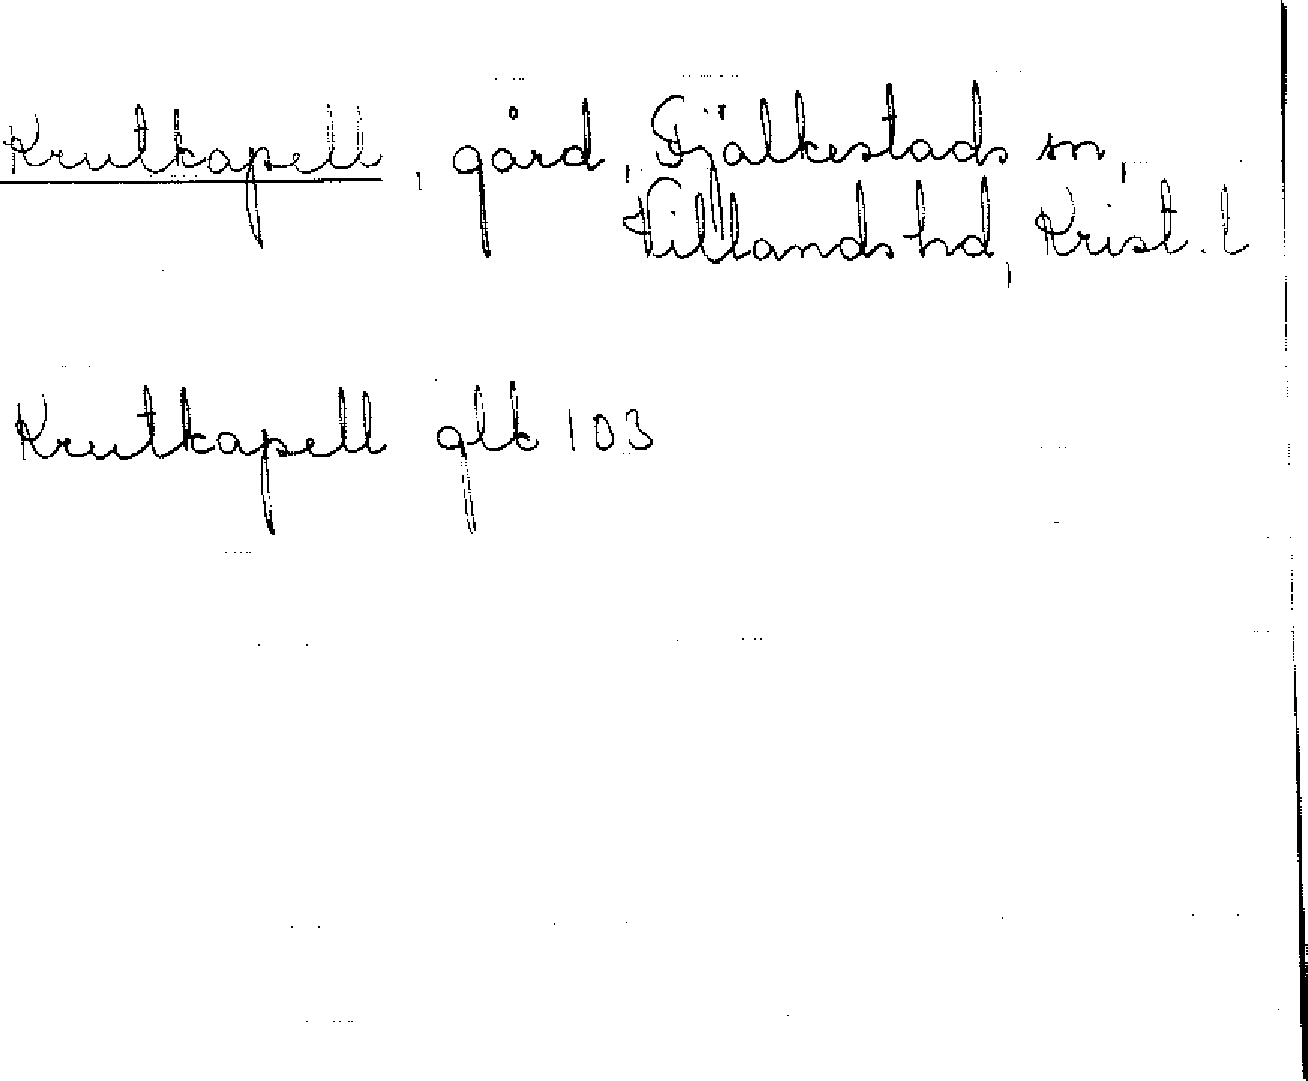 Krutkapell, gård, Fjälkestads sn,
Villands hd, Krist. l
Krutkapell glk 103